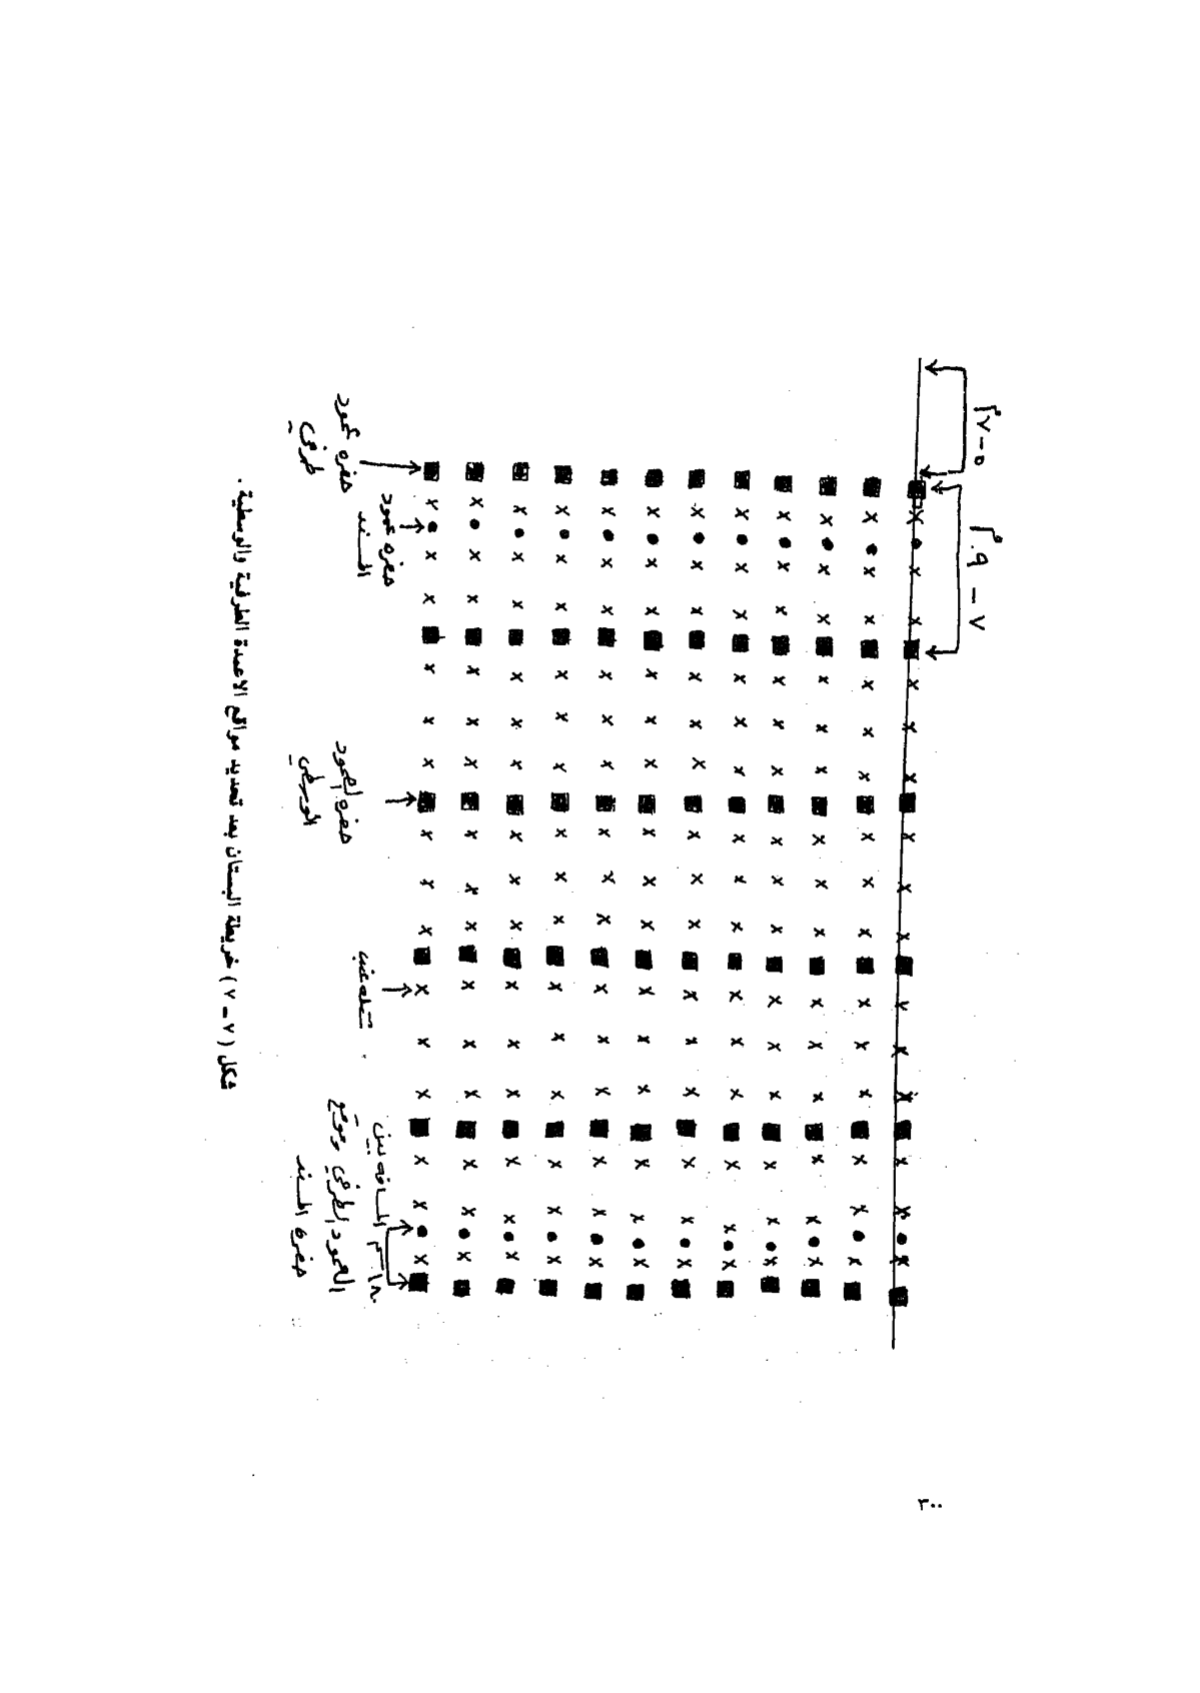 ٥-٧م
٧ - ٩م
حفرة عمود
طرفي
حفرة عمود
السند
حفرة العمود
الوسطي
شتلة عنب
المسافة بين
العمود الطرفي وموقع
حفرة السند
شكل (٧ - ٧) خريطة البستان بعد تحديد مواقع الاعمدة الطرفية والوسطية.
٣٠٠